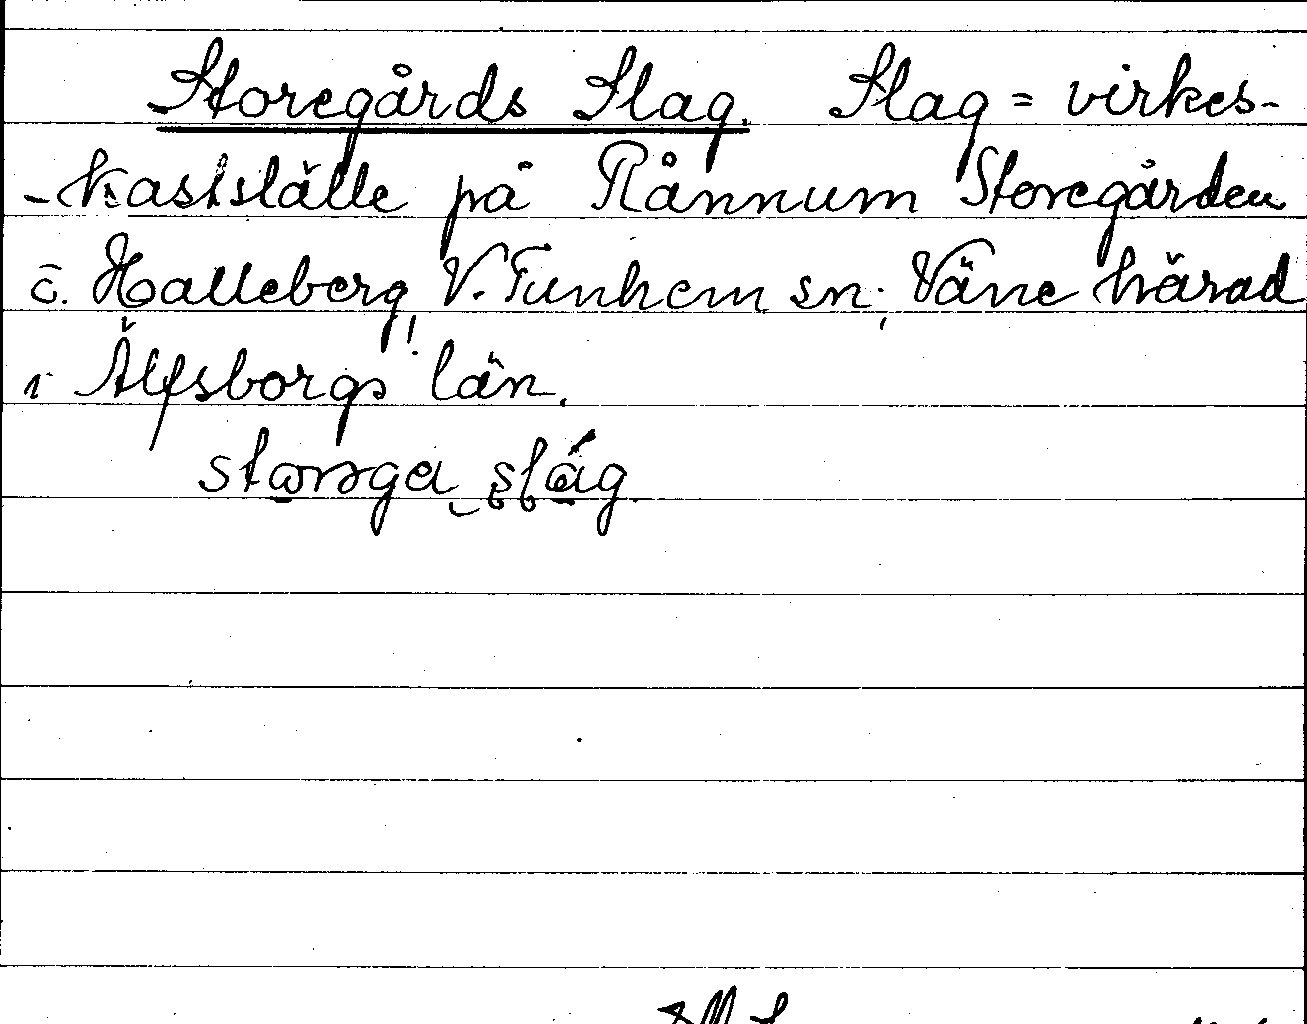 Storegårds Slag. Slag = virkes-
-kastställe på Rånnum Storegården
å. Halleberg, V. Tunhem sn; Väne härad
i Älfsborgs län.